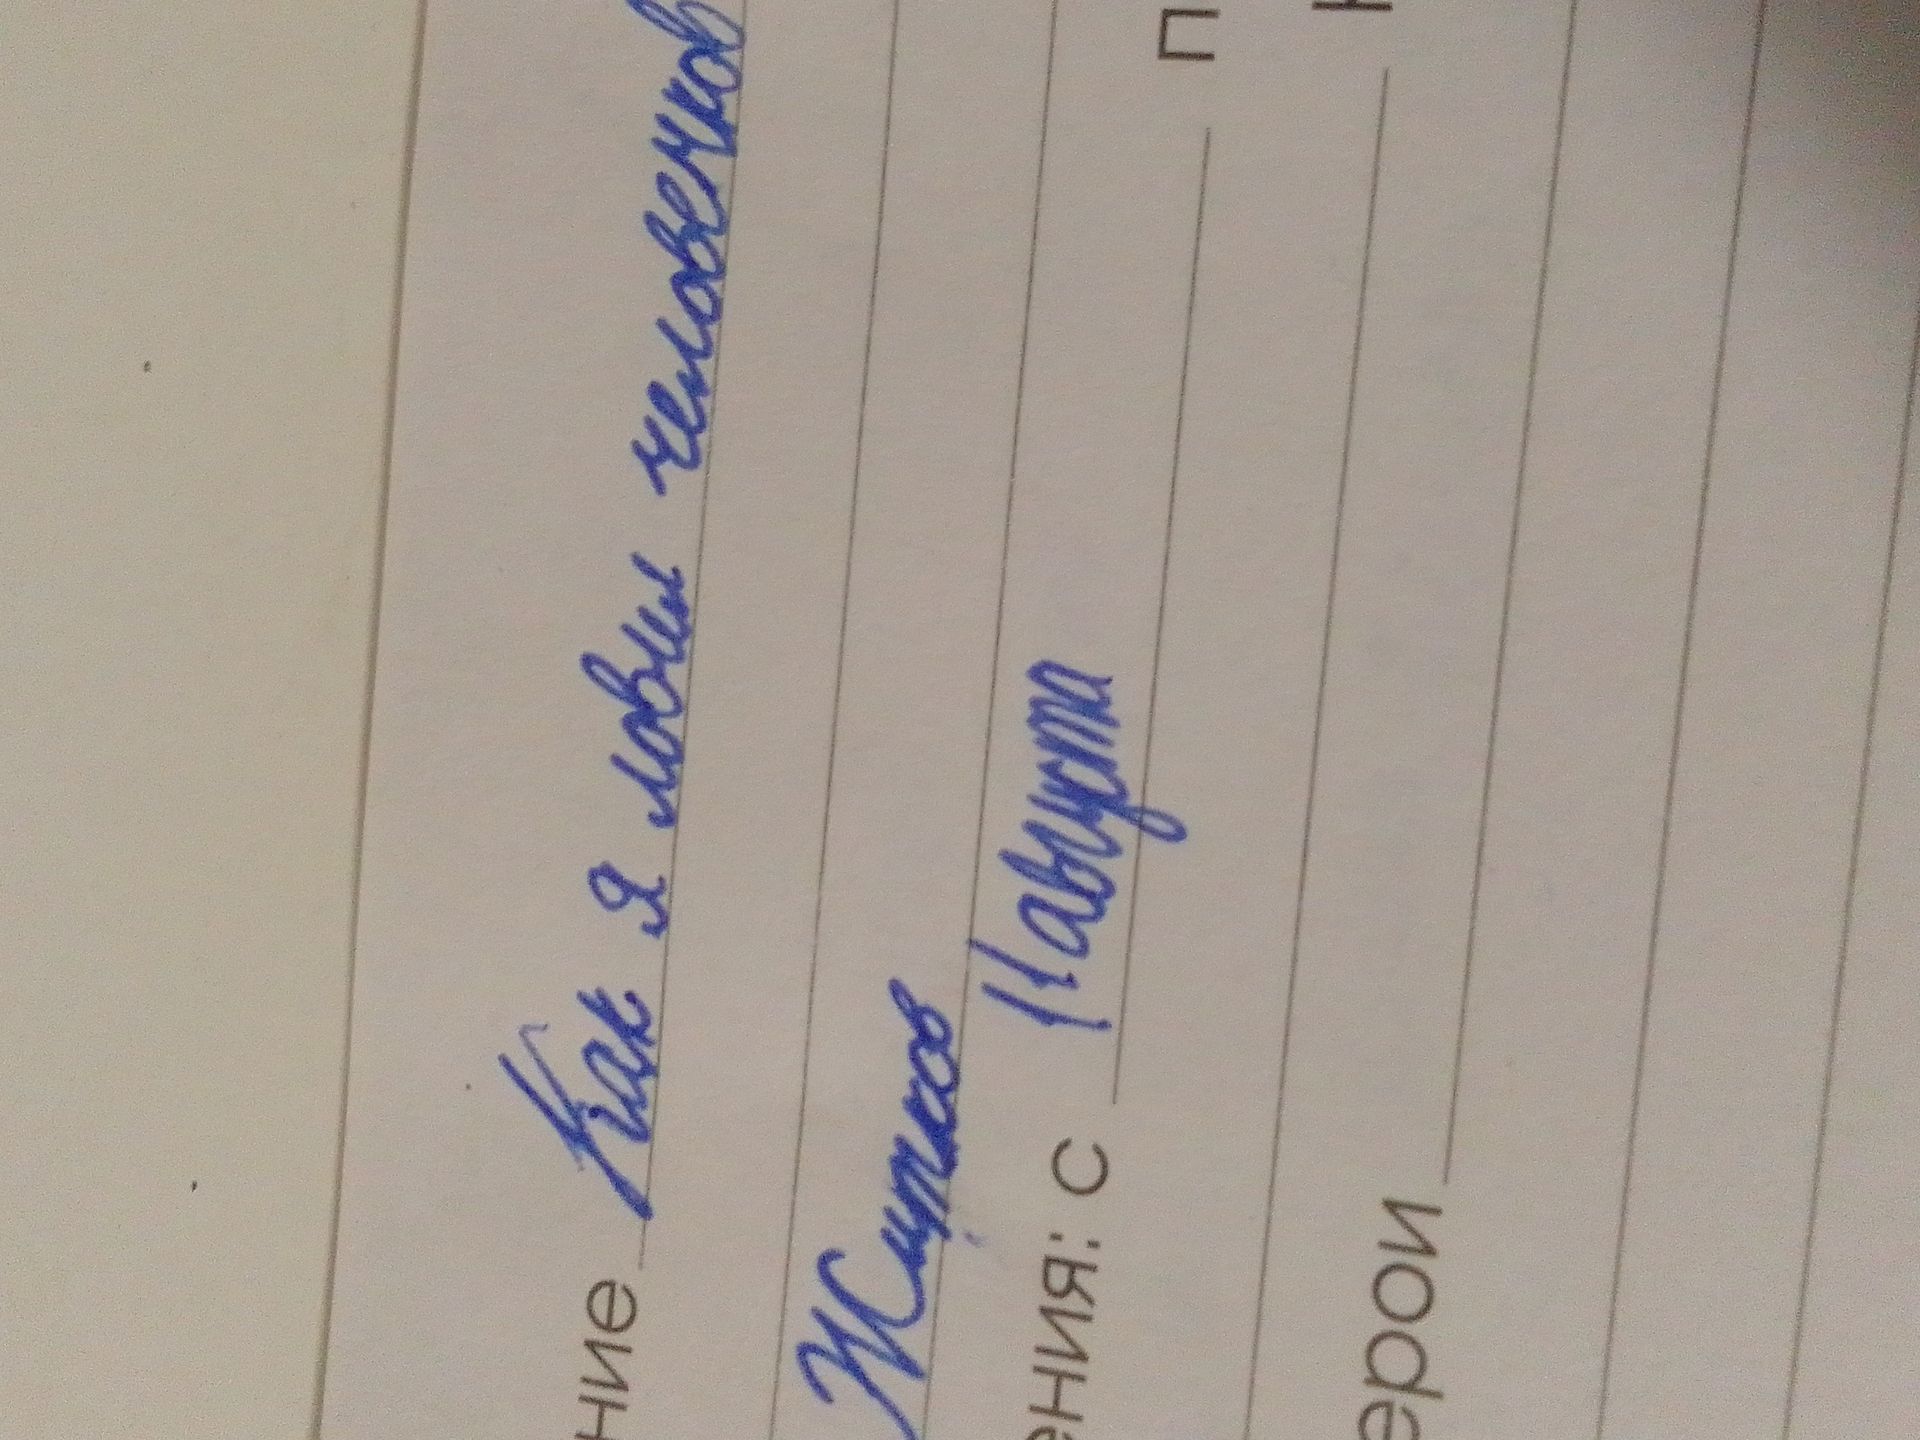 ние Как я ловил человечков
Житков
ения: с 11 августа п
ерои